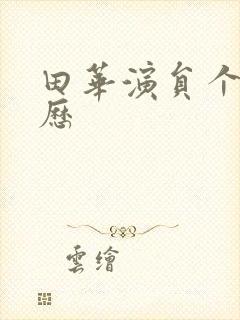 田華演員个
歷
雲繪